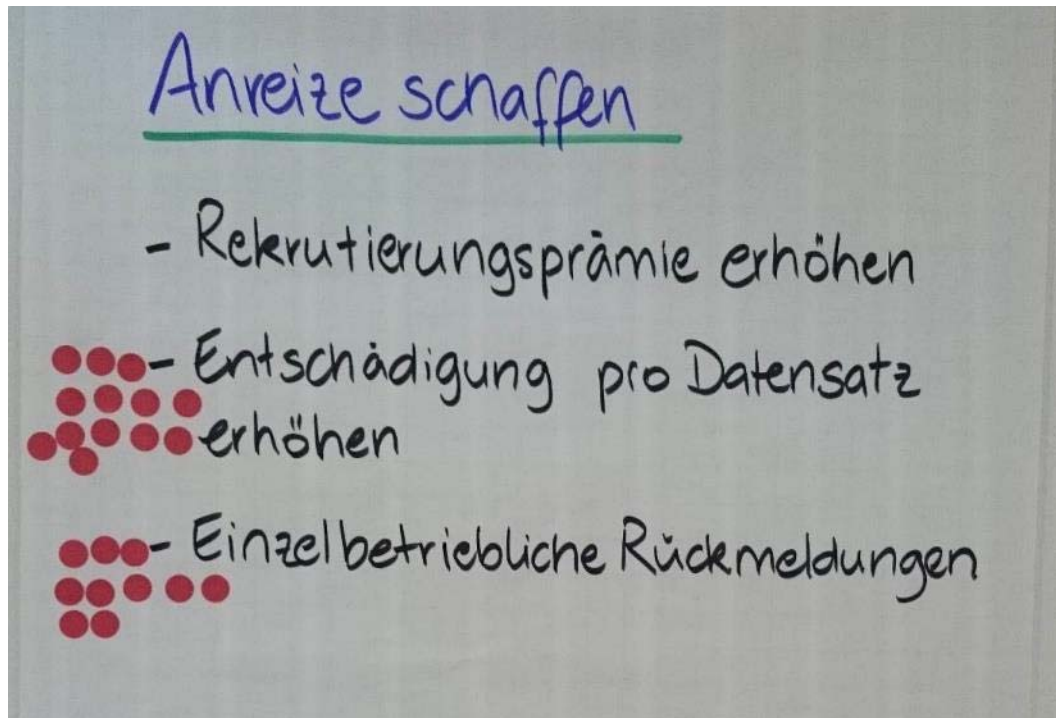 Anreize schaffen
- Rekrutierungsprämie erhöhen
- Entschädigung pro Datensatz
erhöhen
- Einzelbetriebliche Rückmeldungen